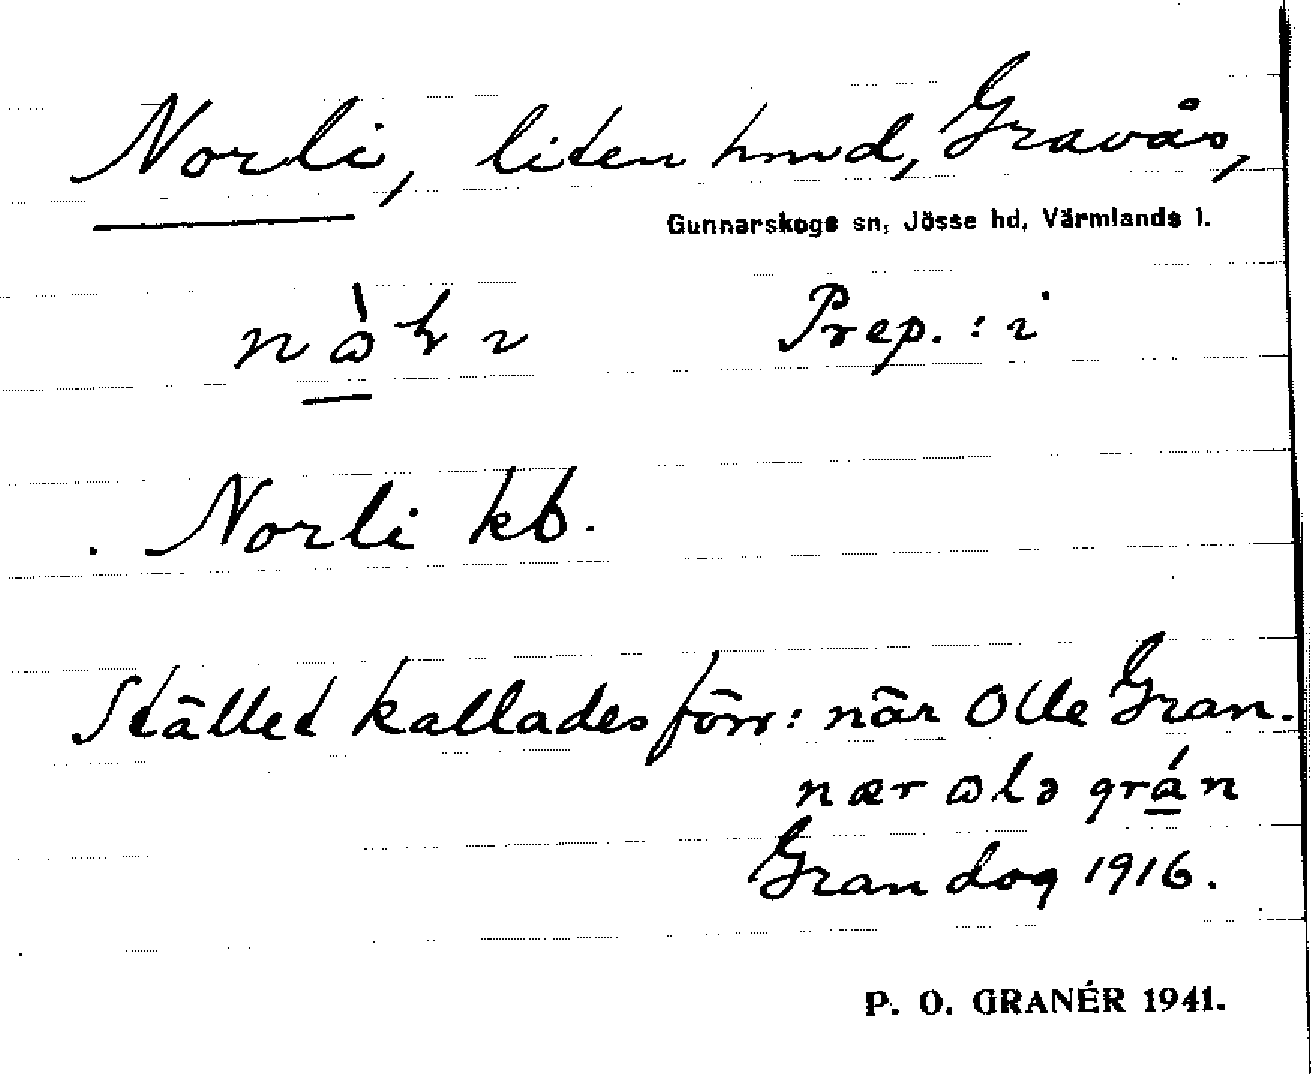 Norli, liten hmd, Gravås,
Gunnarskogs sn, Jösse hd, Värmlands l.
Prep.: i
Norli kb.
Stället kallades förr: när Olle Gran.
nær ɷlə grán
Gran dog 1916.
P. O. GRANÉR 1941.